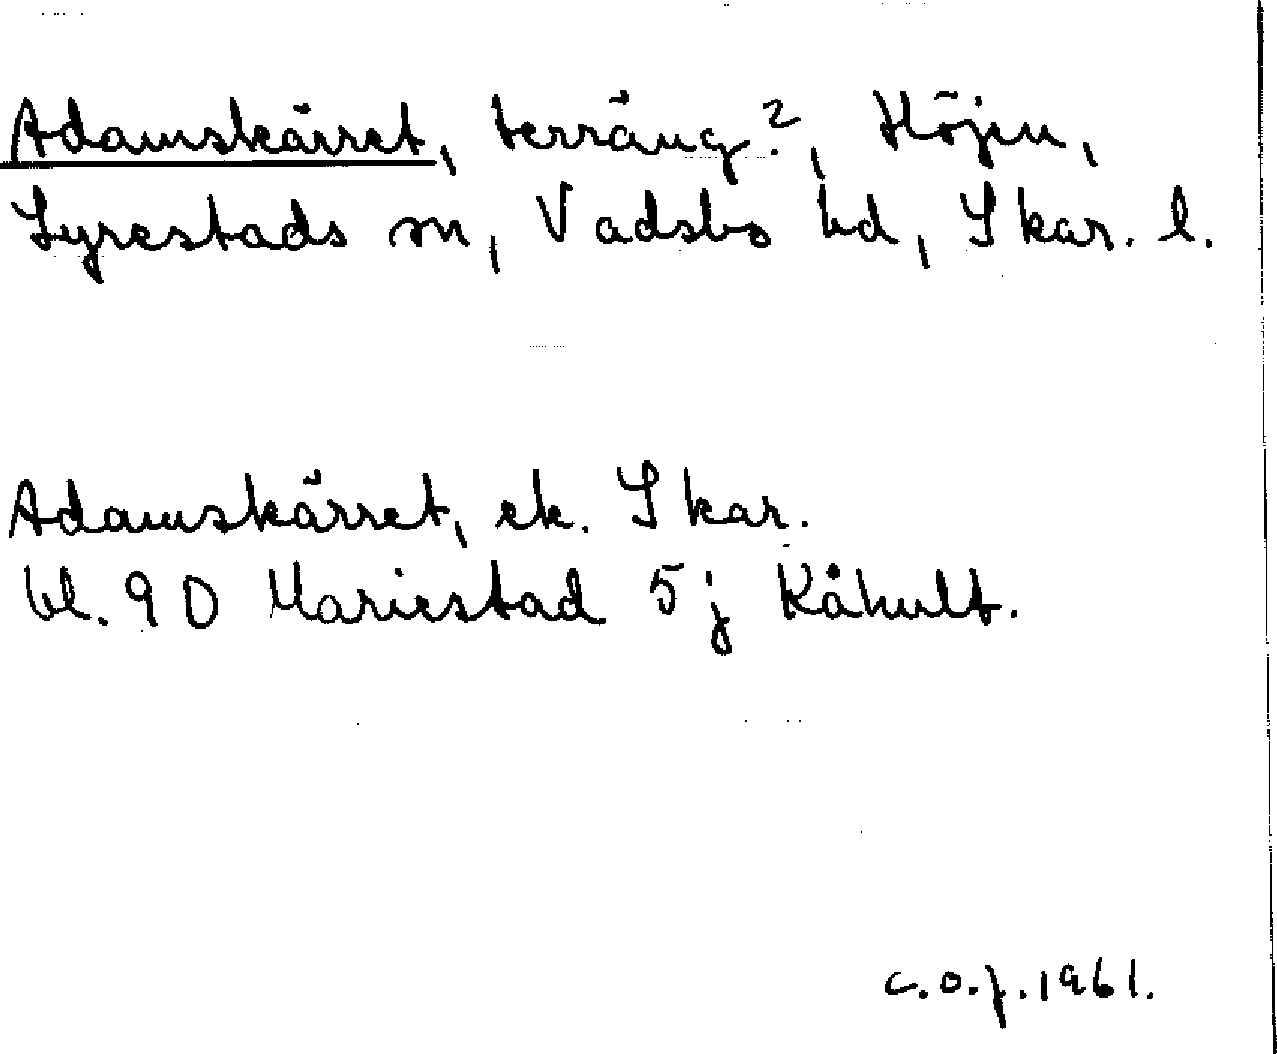 Adamskärret, terräng?, Höjen,
Lyrestads sn, Vadsbo hd, Skar. l.
Adamskärret, ek. Skar.
bl. 9 D Mariestad 5 j Kåhult.
c.o.f. 1961.